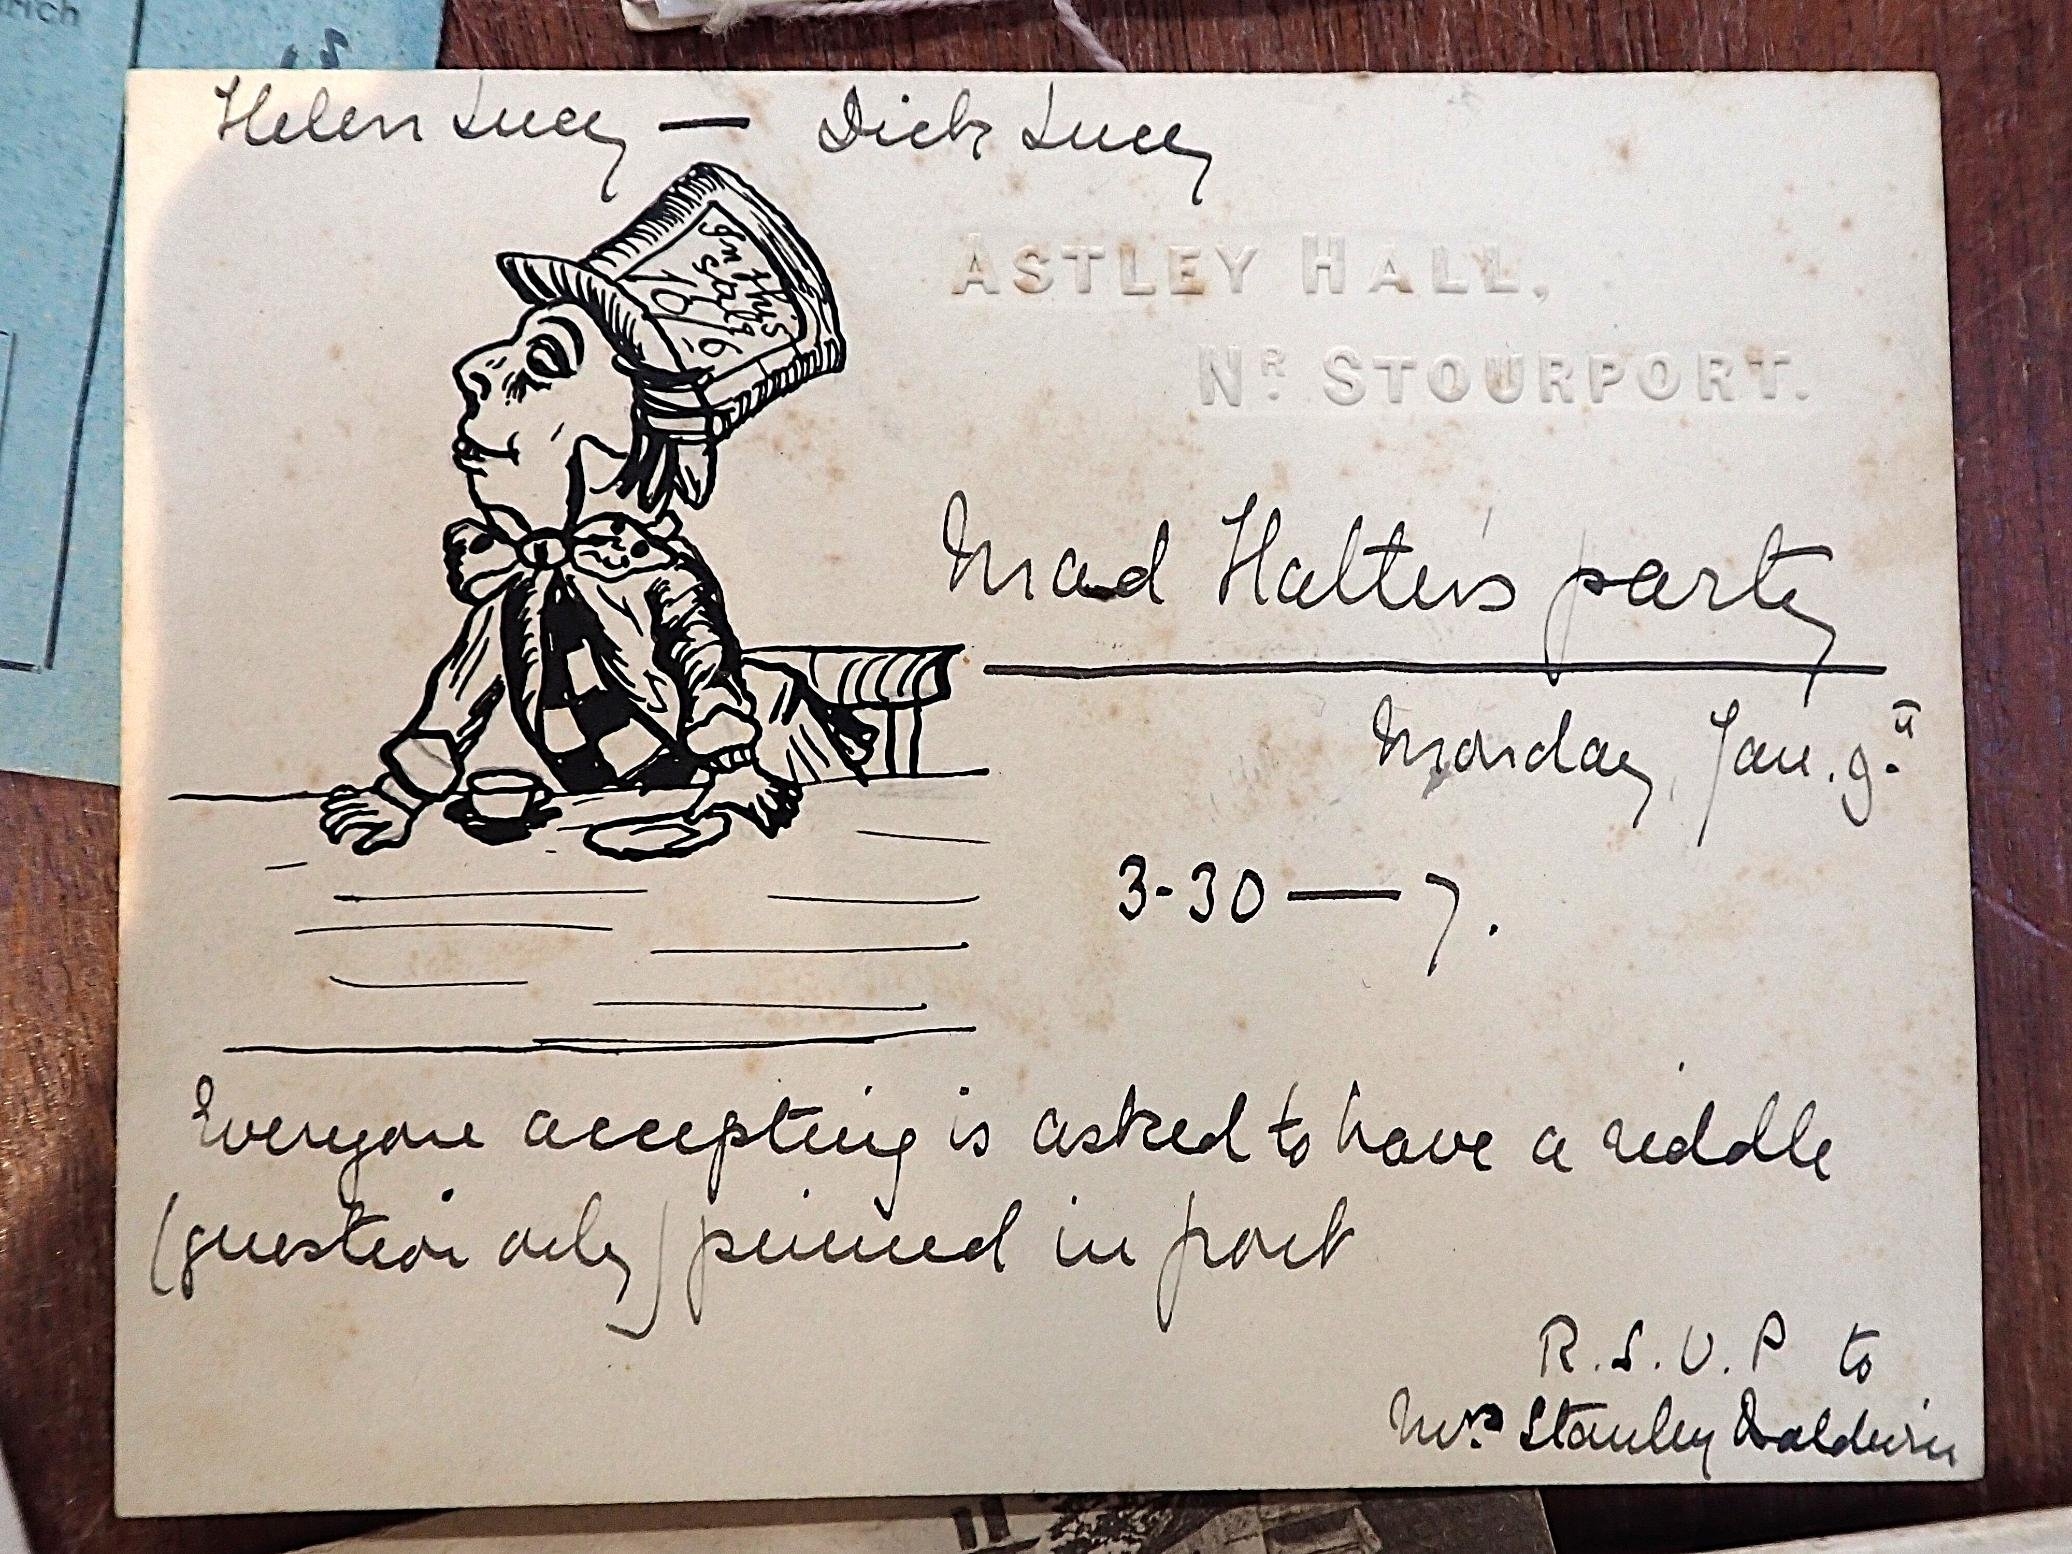 rich
Helen Lucy — Dick Lucy
In this
style
10/6
ASTLEY HALL,
NR STOURPORT.
Mad Hatter's party
Monday, Jan. 9.
3-30 — 7.
Everyone accepting is asked to have a riddle
(question only) pinned in front
R.S.V.P to
Mrs Stanley Baldwin